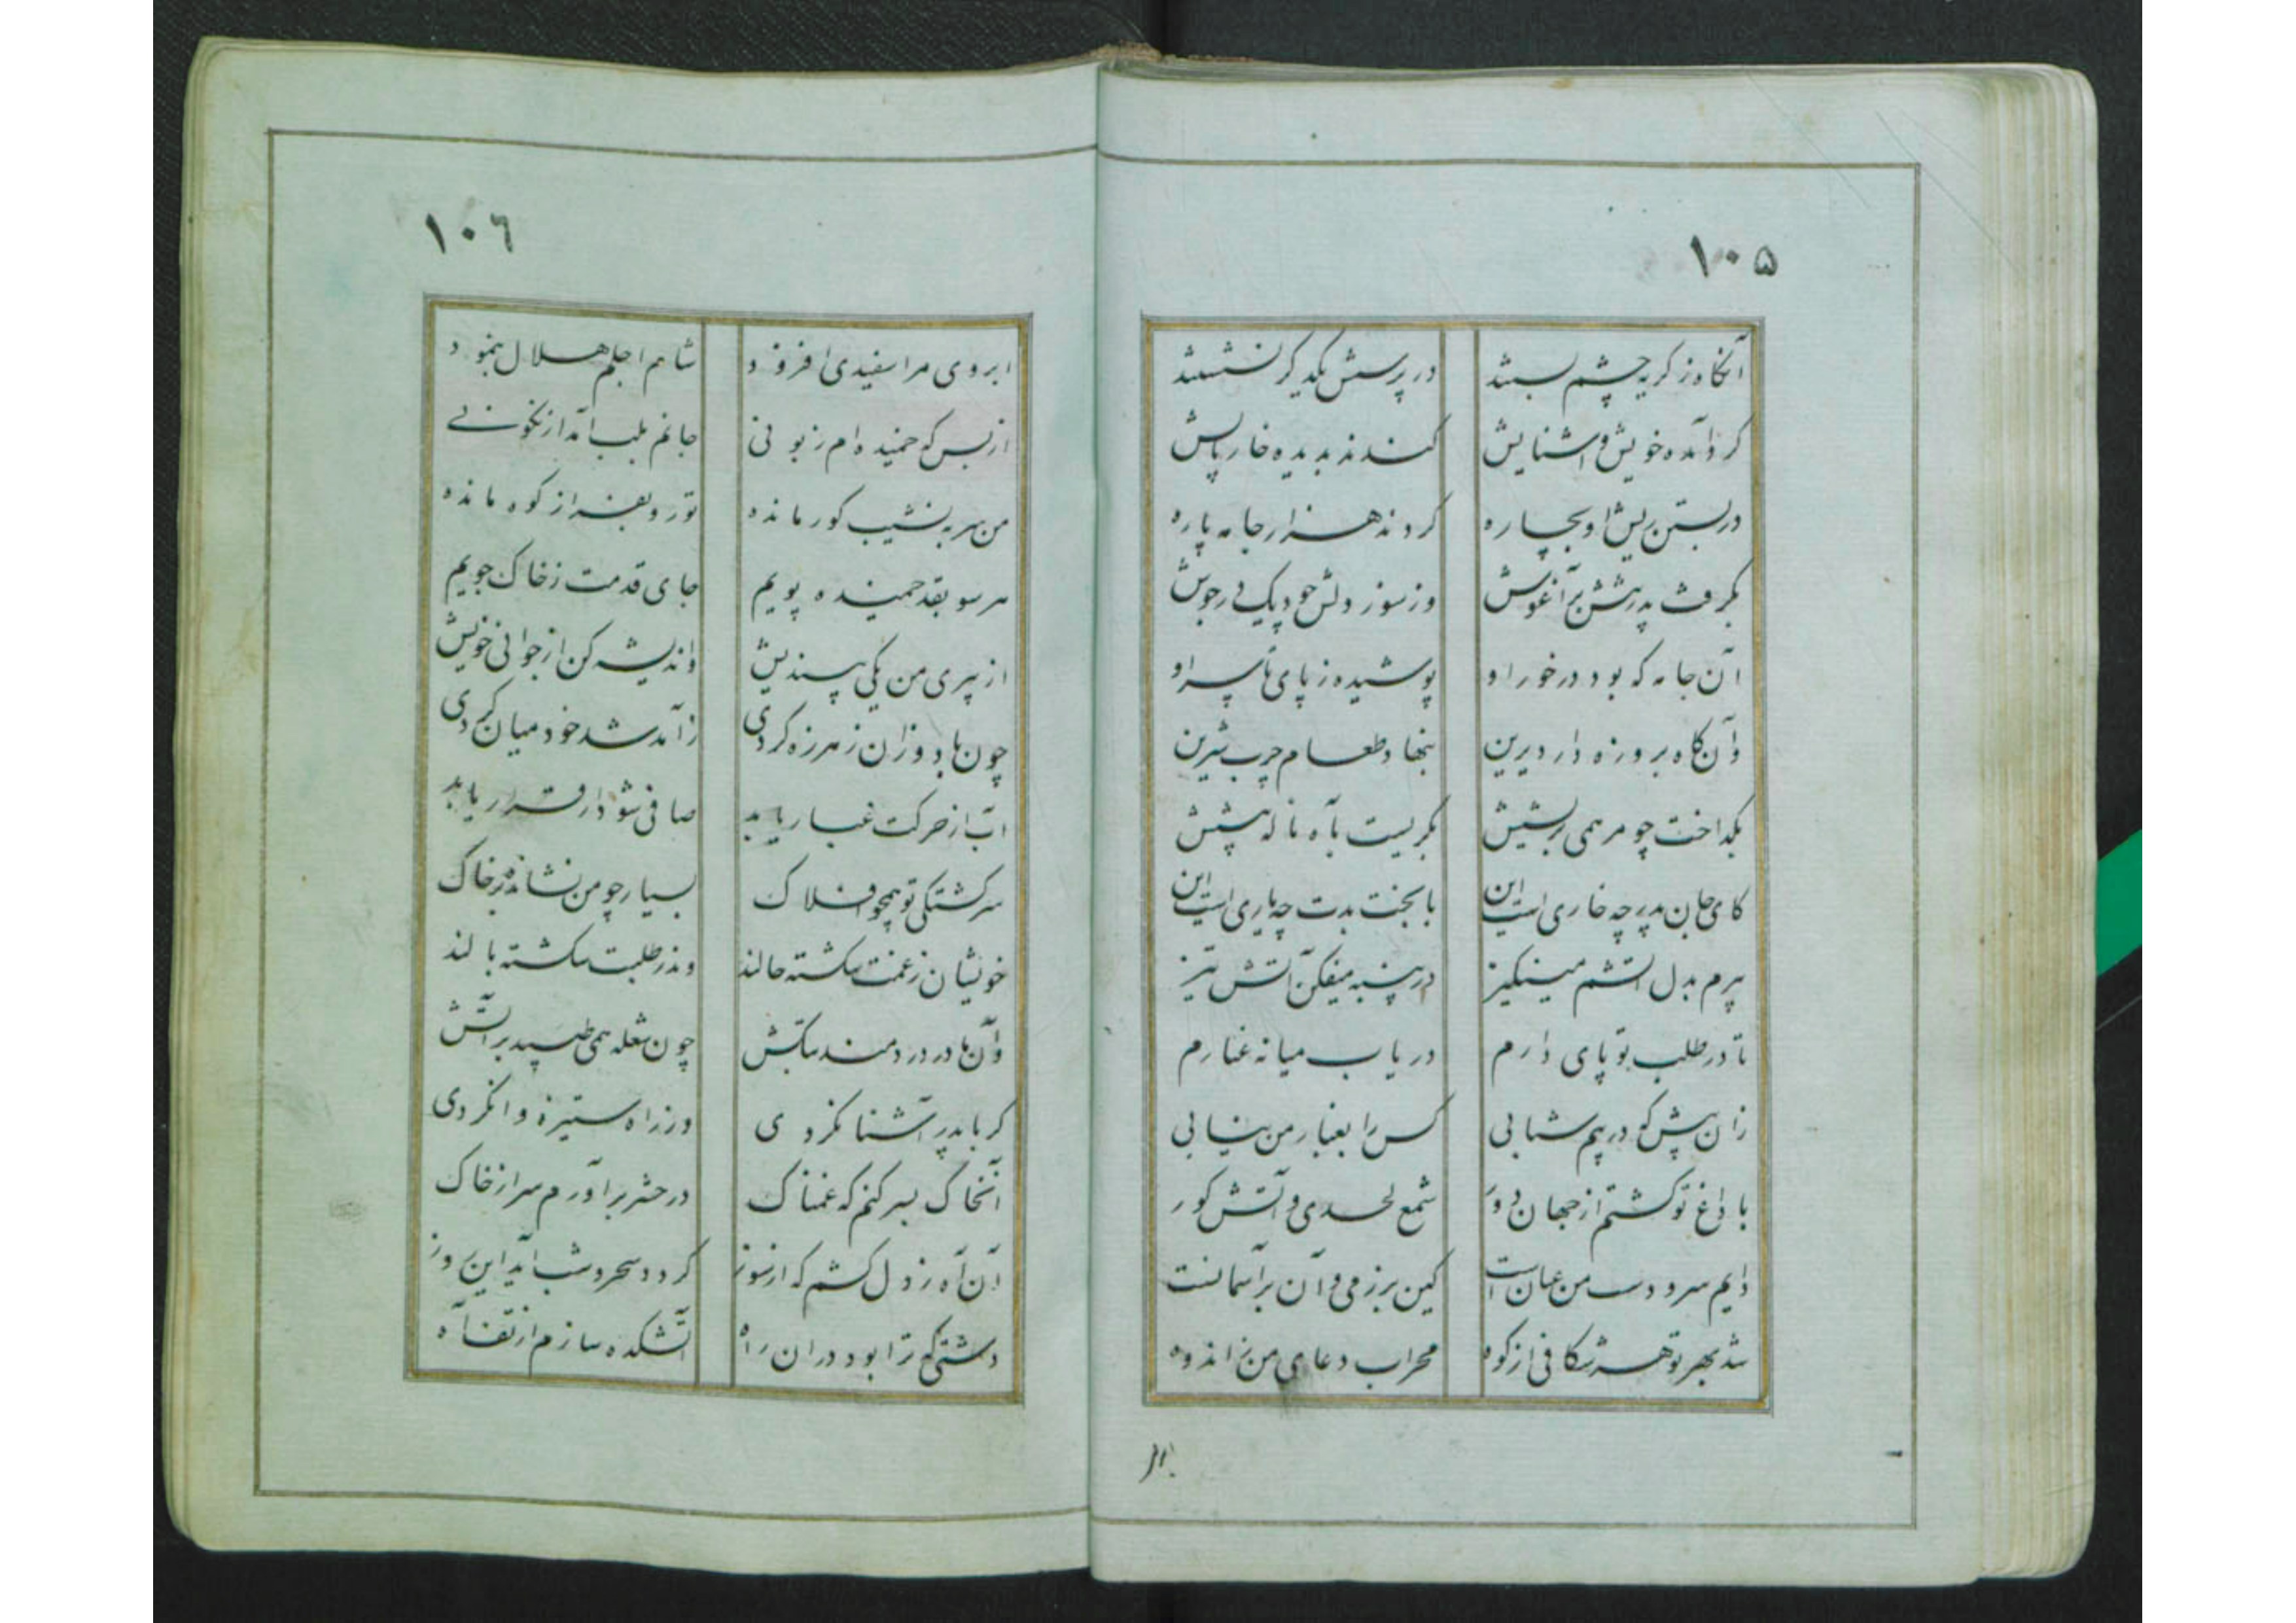 ۱۰۵
آنگاه ز گریه چشم بستند در پرسش یکدگر نشستند
گرد آمده خویش و آشنایش کندند بدیده خار پایش
در بستن ریش او بچاره کردند هزار جامه پاره
بگرفت پدرش بر آغوش وز سوز دلش چو دیک در جوش
آن جامه که بود در خور او پوشیده ز پای تا سر او
وآن گاه بروزه دار دیرین بنهاد طعام چرب شیرین
بگداخت چو مرهمی بریشش بگریست بآه ناله پیشش
کای جان پدر چه خاری است این با بخت بدت چه یاری است این
پیرم بدل آتشم مینگیز در پنبه میفکن آتش تیز
تا در طلب تو پای دارم دریاب میانه غبارم
زان پیش که در پیم شتابی کس را بغبار من نیابی
با داغ تو گشتم از جهان دور شمع لحدی و آتش گور
دایم سر و دست من عیان است کین بر زمی و آن بر آسمانست
شد بهر تو هر شکافی از کوه محراب دعای من ز اندوه
ابر
۱۰٦
ابروی مرا سفیدی افزود شام اجلم هلال بنمود
از بس که خمیده ام زبونی جانم بلب آمد از نگونی
من سر به نشیب گور مانده تو رو بفراز کوه مانده
هر سو بقد خمیده پویم جای قدمت ز خاک جویم
از پیری من یکی بیندیش واندیشه کن از جوانی خویش
چون باد وزان ز هرزه گردی ز آمد شد خود میان کردی
آب از حرکت غبار یابد صافی شود ار قرار یابد
سرگشتگی تو همچو افلاک بسیار چو من نشانده بر خاک
خویشان ز غمت شکسته حالند وندر طلبت شکسته بالند
وآن مادر دردمند سرکش چون شعله همی طپید بر آتش
گر با پدر آشنا نکردی ور ز راه ستیزه وا نکردی
آن خاک بسر کنم که غمناک در حشر بر آورم سر از خاک
آن آه ز دل کشم که از سوز گردد سحر و شب آید این روز
دشتی که ترا بود در آن راه آتشکده سازم از تف آه